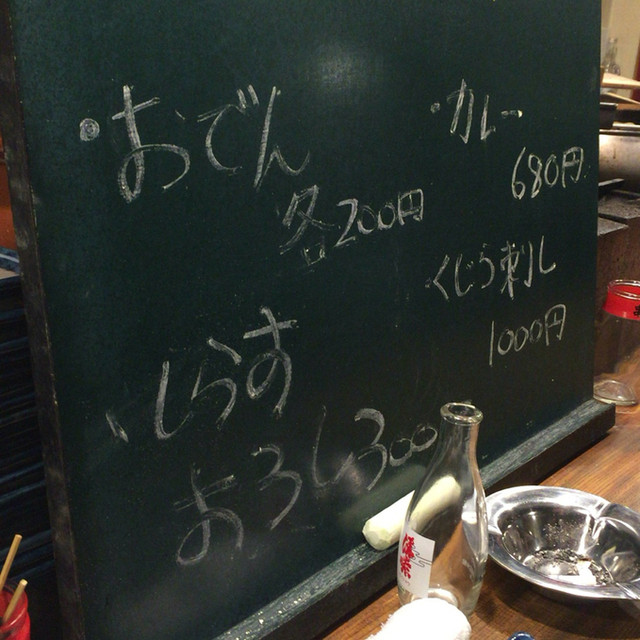 ・おでん
各200円
・しらす
おろし300
・カレー
680円
くじら刺し
1000円